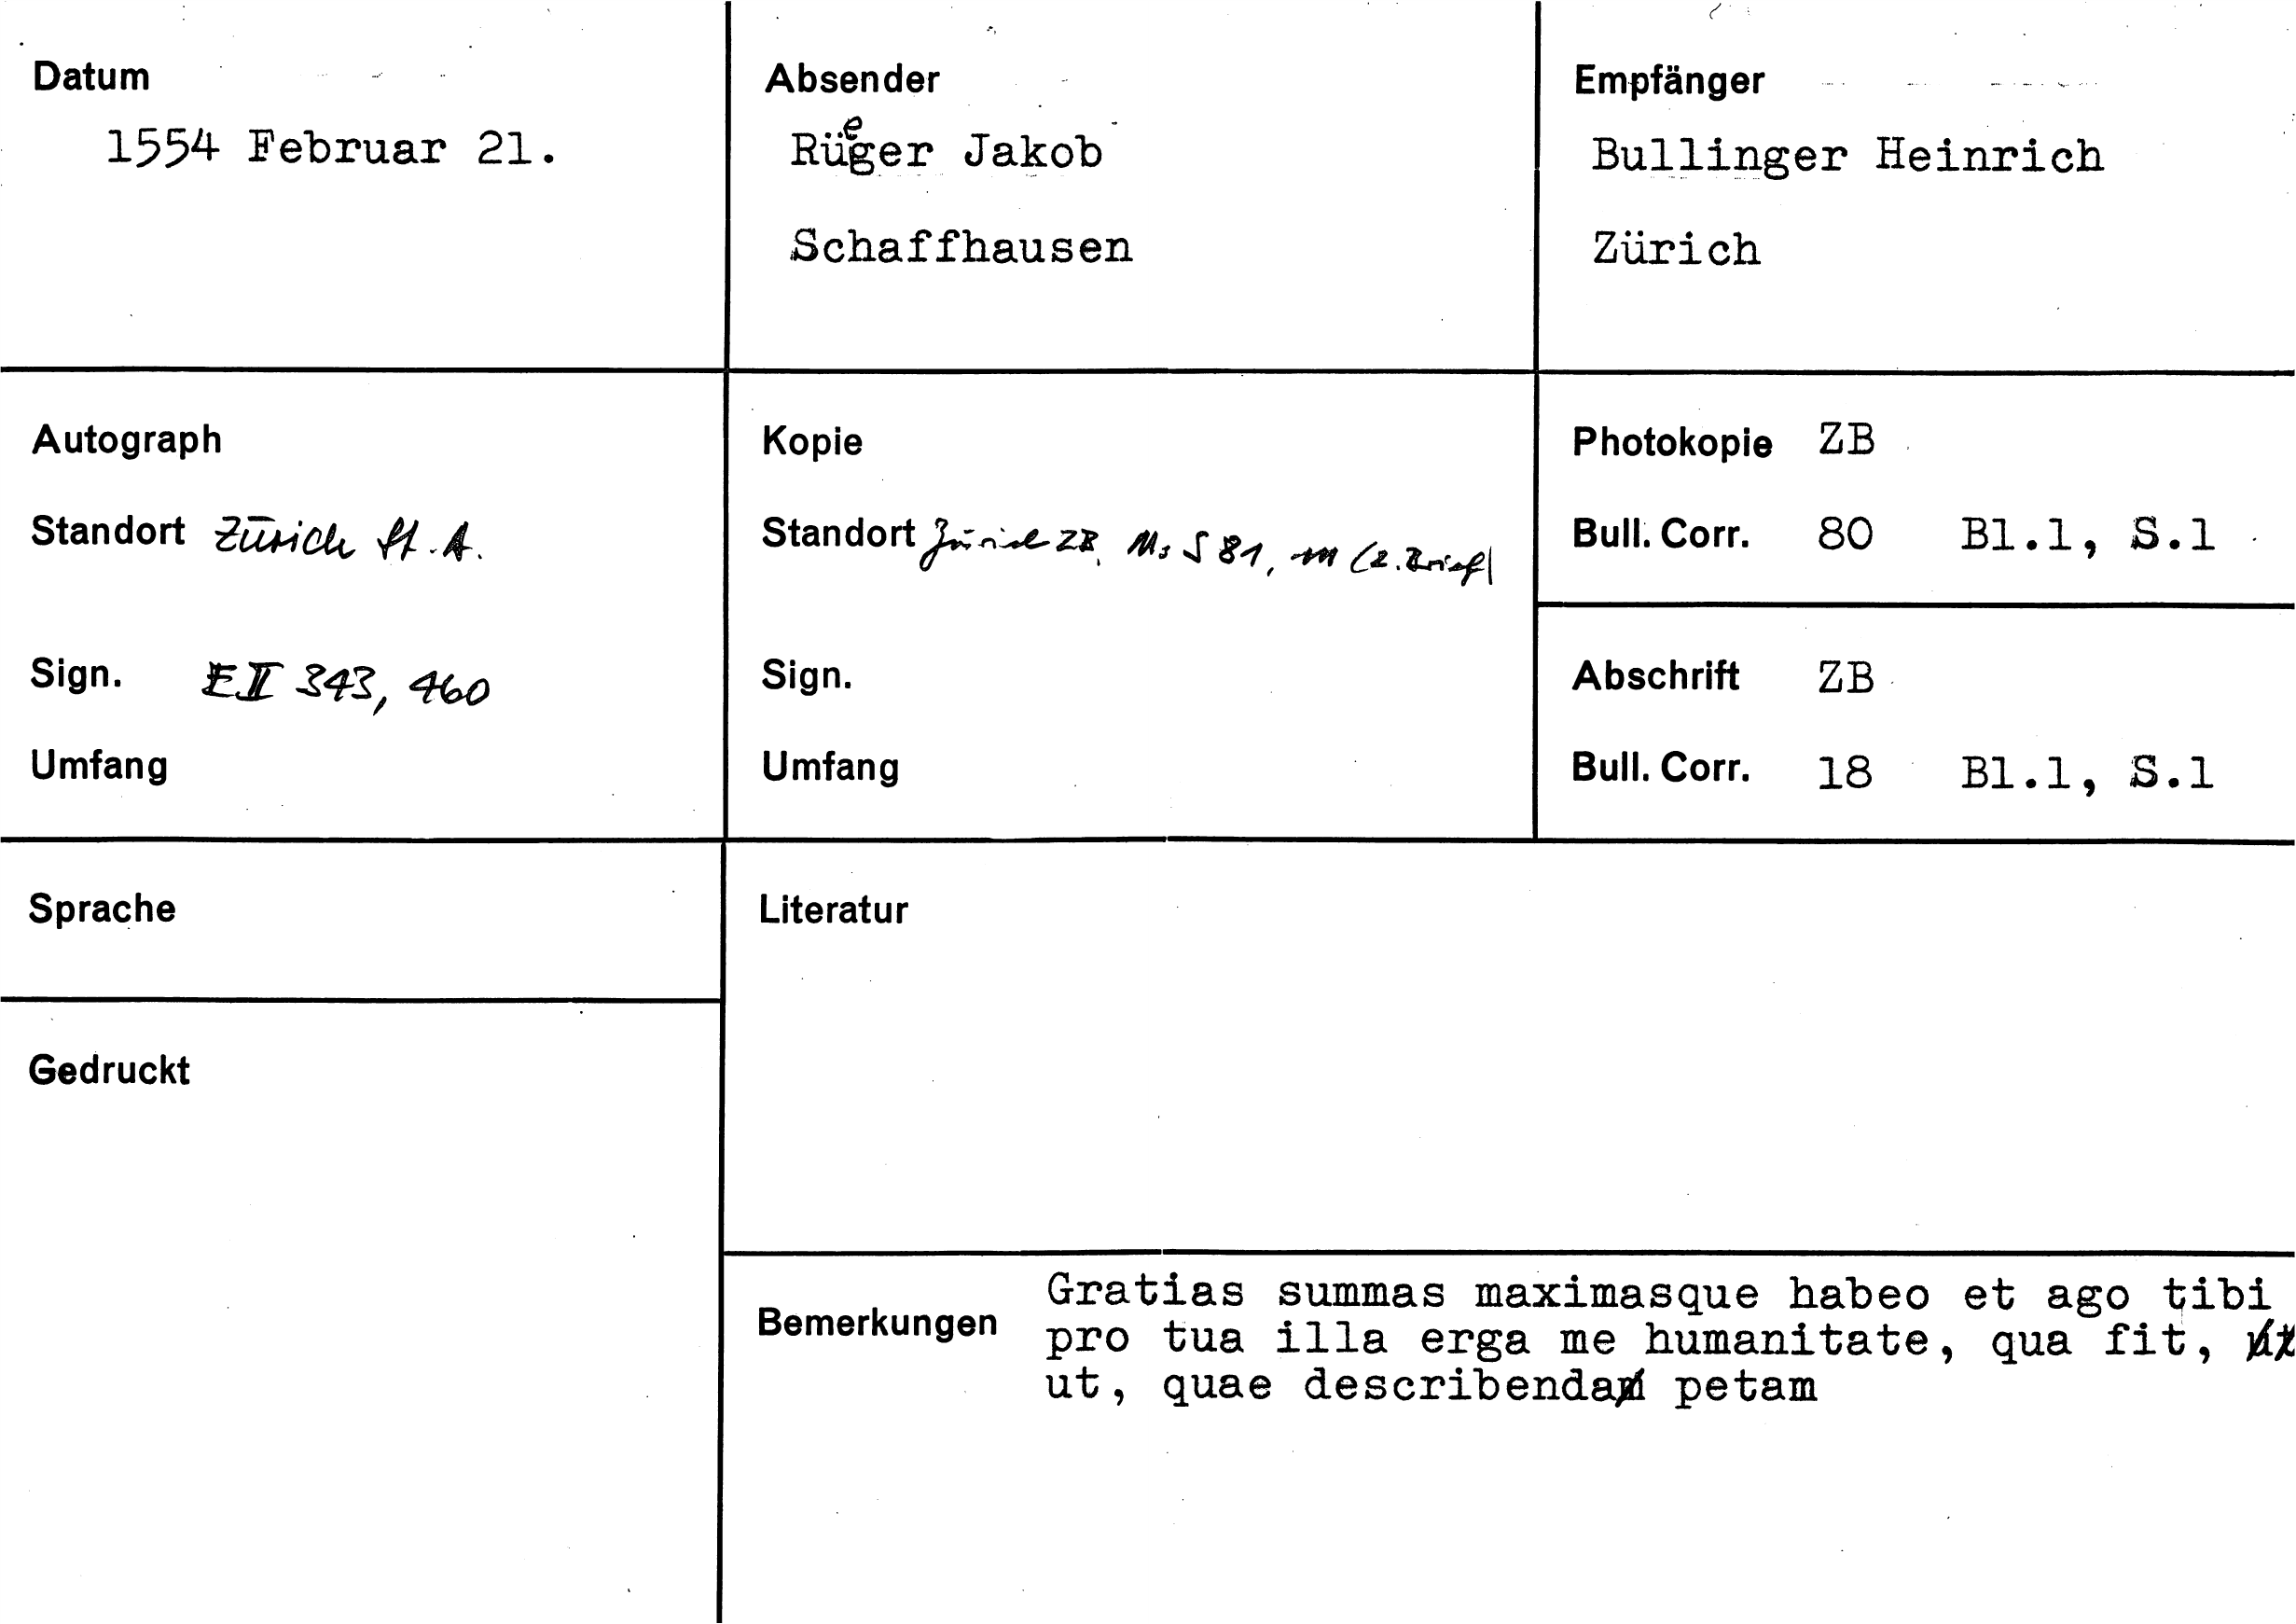 Datum
1554 Februar 21.
Absender
Rüeger Jakob
Schaffhausen
Empfänger
Bullinger Heinrich
Zürich
Autograph
Standort Zürich St. A.
Sign. E II 343, 460
Umfang
Kopie
Standort Zürich ZB, Ms S 81, (2. Brief)
Sign.
Umfang
Photokopie ZB
Bull. Corr. 80 Bl.1, S.1
Abschrift ZB
Bull. Corr. 18 Bl.1, S.1
Sprache
Gedruckt
Literatur
Bemerkungen
Gratias summas maximasque habeo et ago tibi
pro tua illa erga me humanitate, qua fit,
ut, quae describenda petam